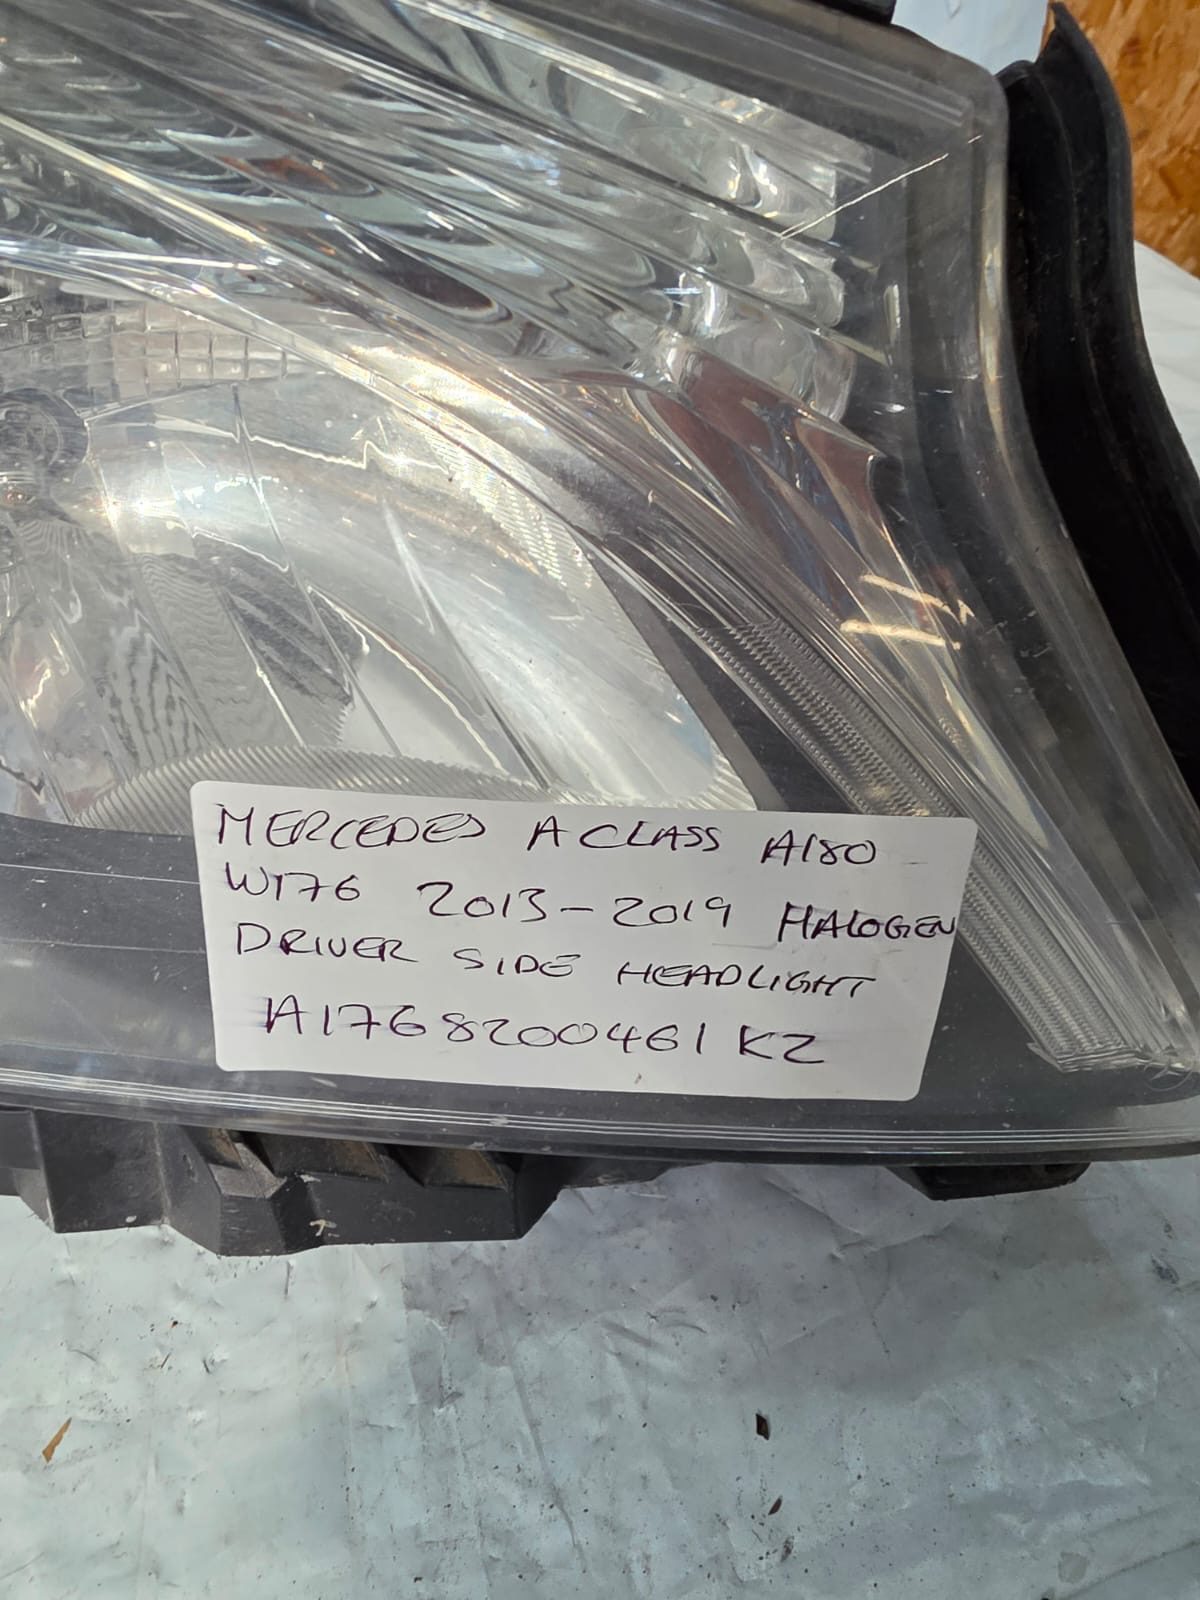 MERCEDES A CLASS A180
W176 2013-2019 HALOGEN
DRIVER SIDE HEADLIGHT
A1768200461 KZ